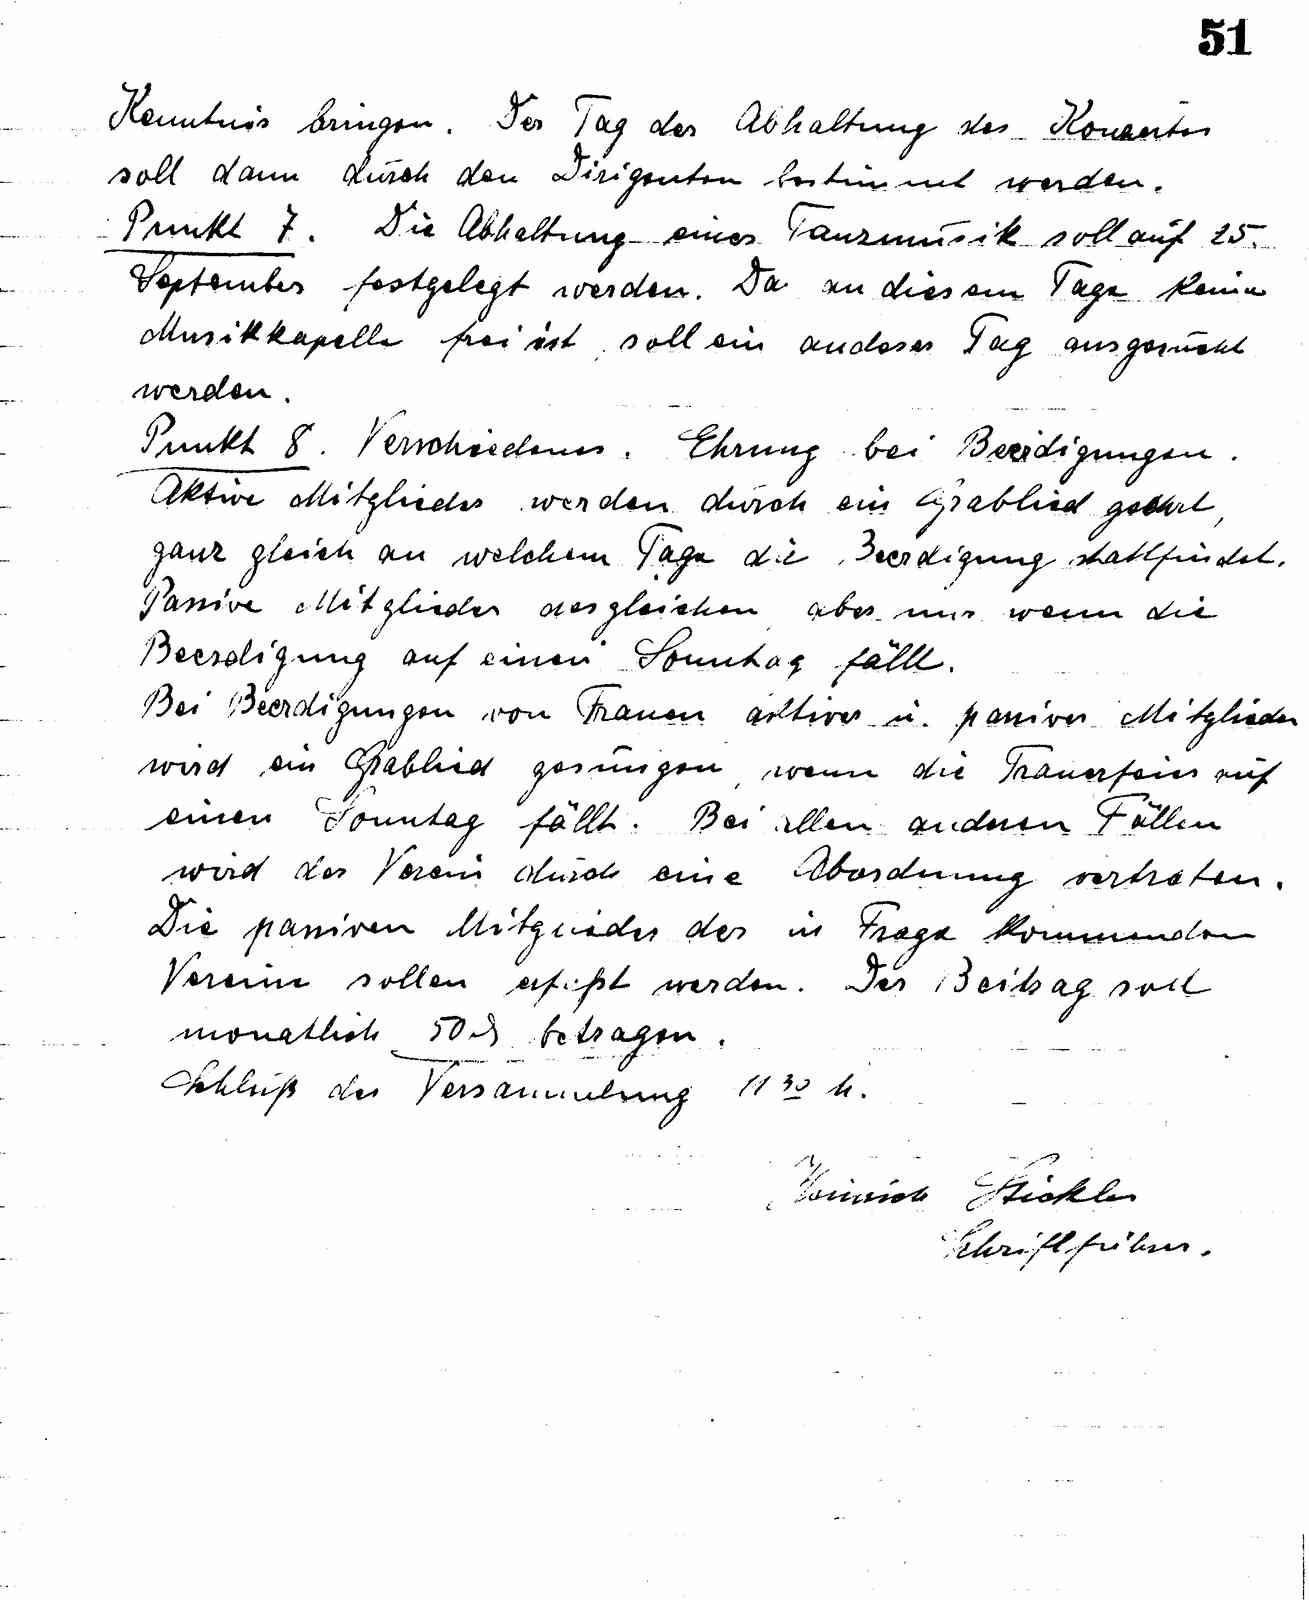 51
Kenntnis bringen. Der Tag der Abhaltung des Konzertes
soll dann durch den Dirigenten bestimmt werden.
Punkt 7. Die Abhaltung einer Tanzmusik soll auf 25.
September festgelegt werden. Da an diesem Tage keine
Musikkapelle frei ist, soll ein anderer Tag ausgesucht
werden.
Punkt 8. Verschiedenes. Ehrung bei Beerdigungen.
Aktive Mitglieder werden durch ein Grablied geehrt,
ganz gleich an welchem Tage die Beerdigung stattfindet.
Passive Mitglieder desgleichen, aber nur wenn die
Beerdigung auf einen Sonntag fällt.
Bei Beerdigungen von Frauen aktiver u. passiver Mitglieder
wird ein Grablied gesungen, wenn die Trauerfeier auf
einen Sonntag fällt. Bei allen anderen Fällen
wird der Verein durch eine Abordnung vertreten.
Die passiven Mitglieder der in Frage kommenden
Vereine sollen erfaßt werden. Der Beitrag soll
monatlich 50 ₰ betragen.
Schluß der Versammlung 11 30 h.
Heinrich Stickler
Schriftführer.